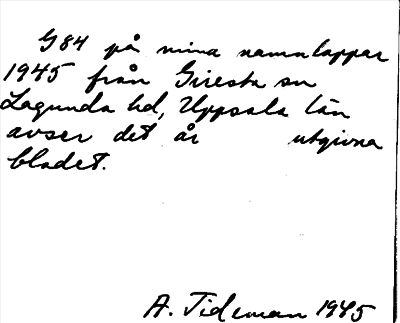 G84 på mina namnlappar
1945 från Giresta sn
Lagunda hd, Uppsala län
avser det år utgivna
bladet.
A. Tideman 1945